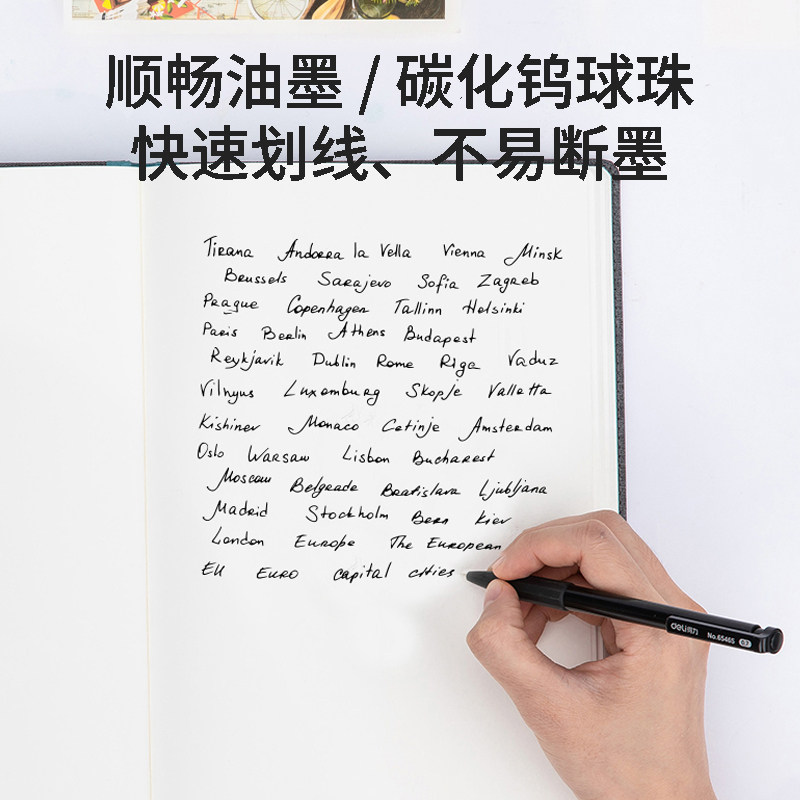 顺畅油墨 / 碳化钨球珠
快速划线、不易断墨
Tirana Andorra la Vella Vienna Minsk
Brussels Sarajevo Sofia Zagreb
Prague Copenhagen Tallinn Helsinki
Paris Berlin Athens Budapest
Reykjavik Dublin Rome Riga Vaduz
Vilnyus Luxemburg Skopje Valletta
Kishinev Monaco Cetinje Amsterdam
Oslo Warsaw Lisbon Bucharest
Moscow Belgrade Bratislava Ljubljana
Madrid Stockholm Bern Kiev
London Europe The European
EU EURO capital cities
deli得力 No.65465 0.7